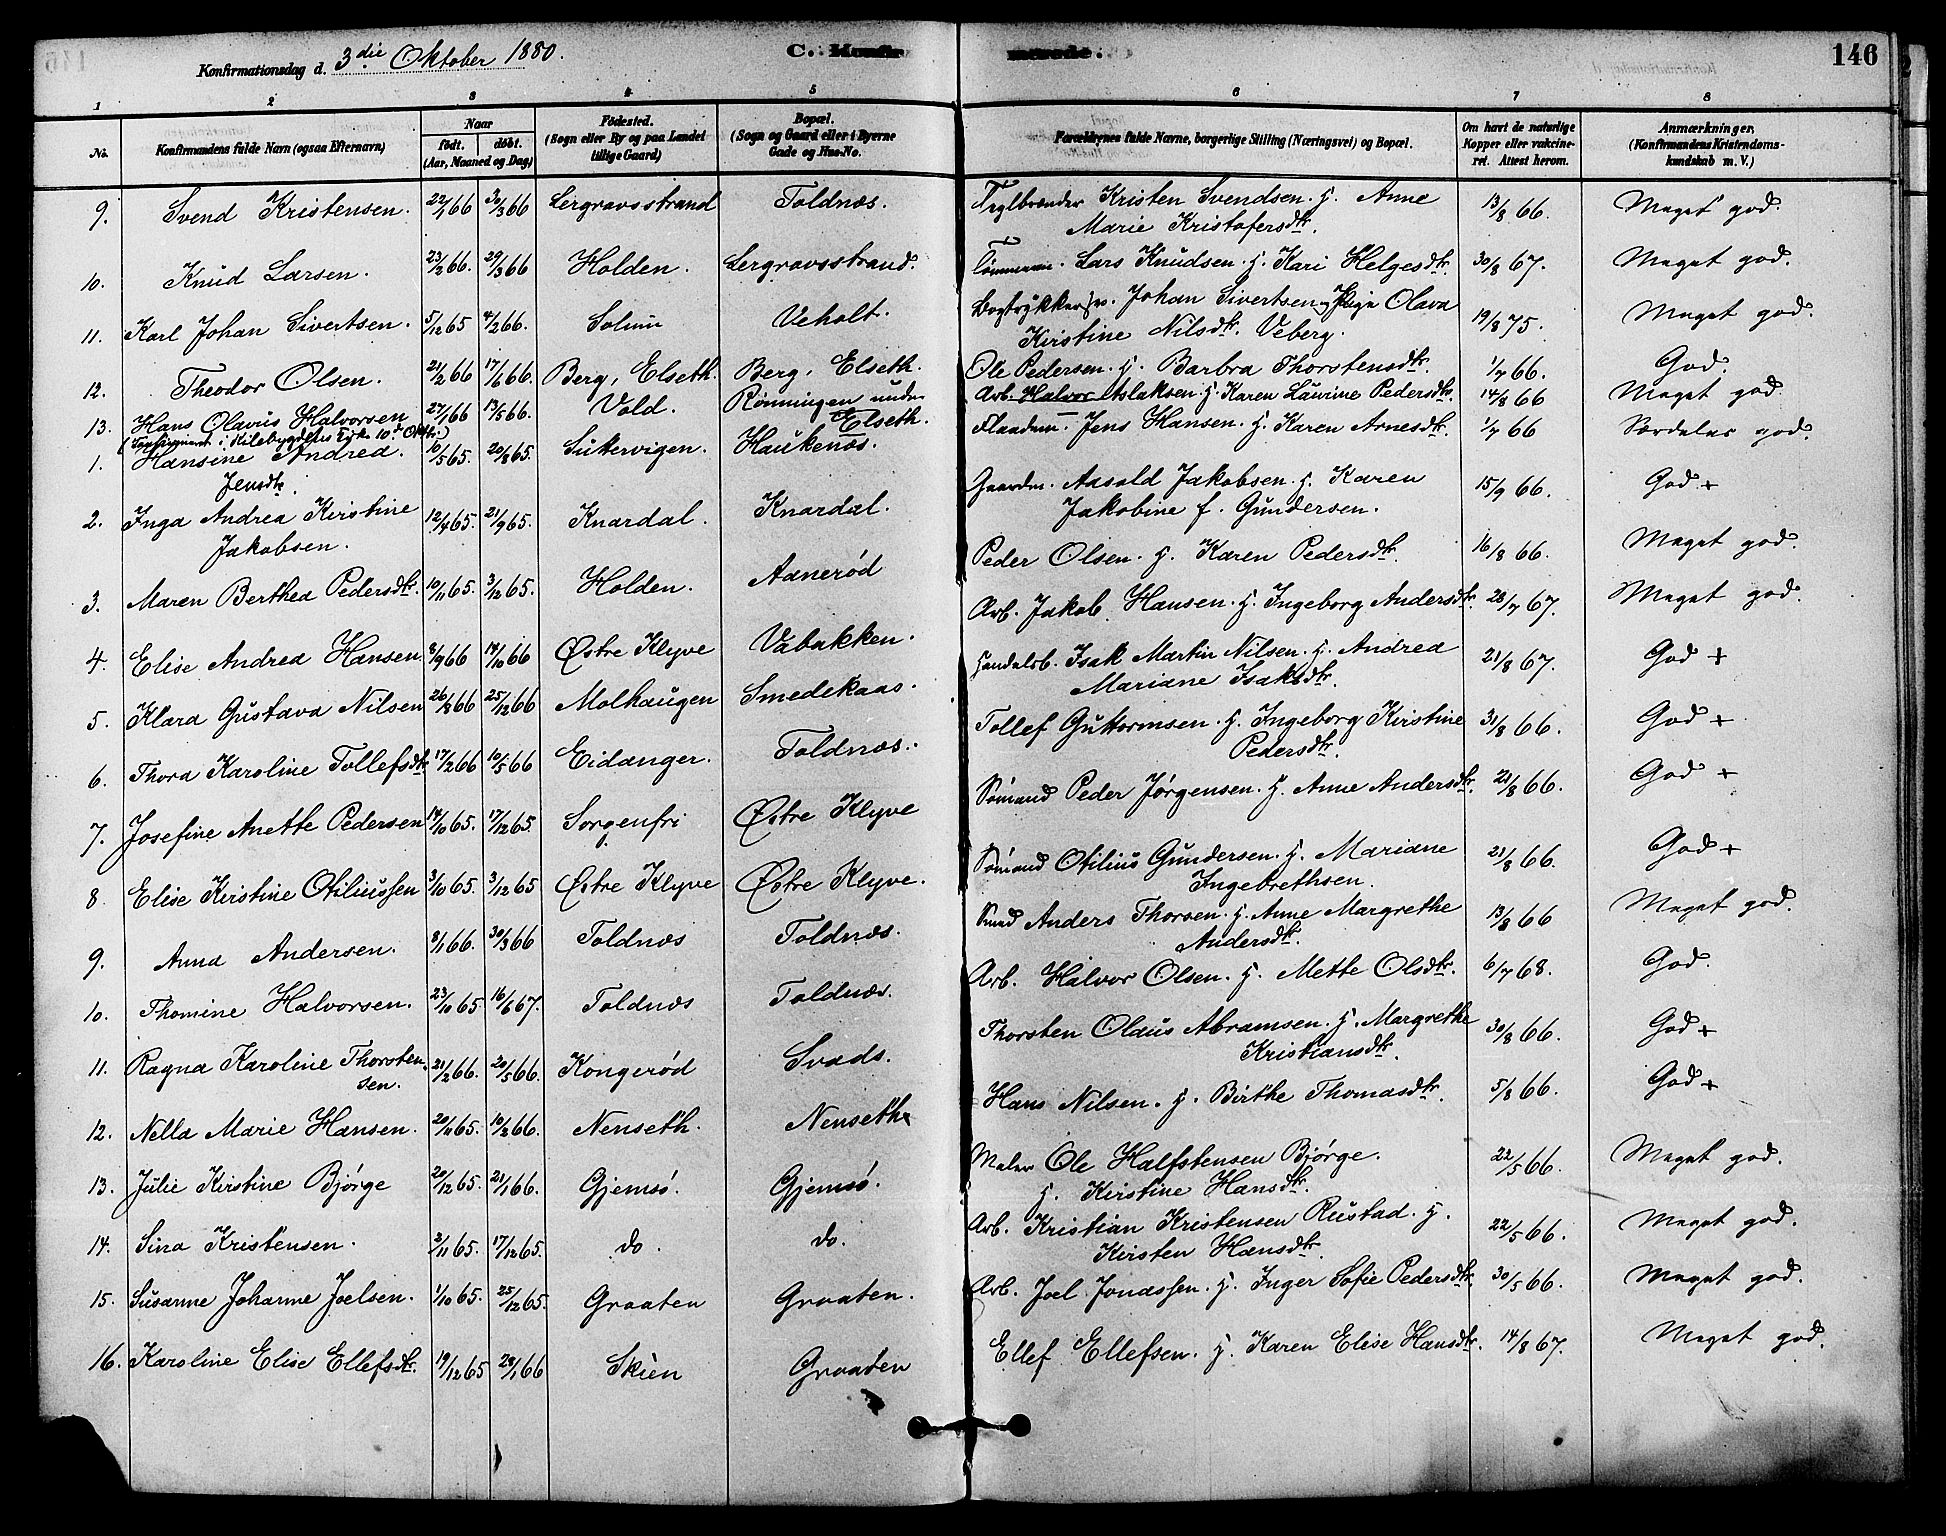 Konfirmationsdag d. 3die Oktober 1880.
C. Konfirmerede.
146
1 2 3 4 5 6 7 8
No.
Konfirmandens fulde Navn (ogsaa Efternavn)
Naar
født. døbt.
(Aar, Maaned og Dag)
Fødested.
(Sogn eller By og paa Landet
tillige Gaard)
Bopæl.
(Sogn og Gaard eller i Byerne
Gade og Hus-No.
Forældrenes fulde Navne, borgerlige Stilling (Næringsvei) og Bopæl.
Om havt de naturlige
Kopper eller vakcineret. Attest herom.
Anmærkninger.
(Konfirmandens Kristendomskundskab m. V.)
9. Svend Kristensen. 22/1 66 30/3 66 Lergravsstrand Toldnæs. Teglbrænder Kristen Svendsen. H. Anne 13/8 66. Meget god.
Marie Kristofersdtr.
10. Knud Larsen. 23/2 66. 29/3 66 Holden. Lergravsstrand. Tømmerm. Lars Knudsen. H. Kari Helgesdtr. 30/8 67. Meget god.
11. Karl Johan Sivertsen. 5/12 65 4/2 66. Solum Veholt. Johan Sivertsen Olava 19/8 75. Meget god.
Kirstine Nilsdtr. Veberg.
12. Theodor Olsen. 21/2 66 17/6 66. Berg, Elseth. Berg, Elseth. Ole Pedersen. H. Barbra Thorstensdtr. 1/7 66. God.
13. Hans Olavus Halvorsen 27/1 66 13/5 66. Vold. Rønningen under Elseth. Arb. Halvor Aslaksen. H. Karen Laurine Pedersdtr. 14/8 66 Meget god
(Konfirmeret i Kilebygdens Kirke 10de Oktbr.)
1. Hansine Andrea. 10/5 65. 20/8 65. Sukervigen. Haukenæs. Jens Hansen. H. Karen Arnesdtr. 1/7 66 Særdeles god.
Jensdtr.
2. Inga Andrea Kirstine 12/4 65. 21/9 65. Knardal. Knardal. Gaardm. Aasold Jakobsen. H. Karen 15/9 66. God +
Jakobsen. Jakobine f. Gundersen.
3. Maren Berthea Pedersdtr. 10/11 65. 3/12 65. Holden. Aanerød Peder Olsen. H. Karen Pedersdtr. 16/8 66. Meget god.
4. Elise Andrea Hansen 8/9 66 14/10 66 Østre Klyve Vabakken. Arb. Jakob Hansen. H. Ingeborg Andersdtr. 28/7 67. Meget god.
5. Klara Gustava Nilsen 26/8 66 25/12 66 Molhaugen Smedekaas. Handelsb. Isak Martin Nilsen. H. Andrea 21/8 67. God +
Mariane Isaksdtr.
6. Thora Karoline Tollefsdtr. 17/2 66 10/5 66 Eidanger. Toldnæs. Tollef Guttormsen. H. Ingeborg Kirstine 31/8 66. God +
Pedersdtr.
7. Josefine Anette Pedersen 14/10 65. 17/12 65. Sorgenfri Østre Klyve Sømand Peder Jørgensen. H. Anne Andersdtr. 21/8 66. God +
8. Elise Kirstine Otiliussen 3/10 65. 3/12 65 Østre Klyve Østre Klyve. Sømand Otilius Gundersen. H. Mariane 21/8 66. God +
Ingebrethsen.
9. Anna Andersen. 8/1 66. 30/3 66 Toldnæs Toldnæs. Smed Anders Thorsen. H. Anne Margrethe 13/8 66 Meget god.
Andersdtr.
10. Thomine Halvorsen. 23/10 65. 16/6 67. Toldnæs Toldnæs. Arb. Halvor Olsen. H. Mette Olsdtr. 6/7 68. God.
11. Ragna Karoline Thorstensen. 21/2 66. 20/5 66. Kongerød Svads. Thorsten Olaus Abramsen. H. Margrethe 30/8 66. God +
Kristiansdtr.
12. Nella Marie Hansen. 20/11 65. 10/3 66. Nenseth. Nenseth Hans Nilsen. H. Birthe Thomasdtr. 5/8 66. God +
13. Julie Kirstine Bjørge 20/12 65. 21/1 66. Gjemsø. Gjemsø. Maler Ole Halfstensen Bjørge. 22/5 66. Meget god.
H. Kirstine Hansdtr.
14. Sina Kristensen. 2/11 65. 17/12 65. do. do. Arb. Kristian Kristensen Rustad. H. 22/5 66. Meget god.
Kirsten Hansdtr.
15. Susanne Johanne Joelsen. 1/10 65. 25/12 65. Graaten Graaten. Arb. Joel Jonassen. H. Inger Sofie Pedersdtr. 30/5 66. Meget god.
16. Karoline Elise Ellefsdtr. 19/12 65 28/1 66 Skien Graaten Ellef Ellefsen. H. Karen Elise Hansdtr. 14/8 67. Meget god.